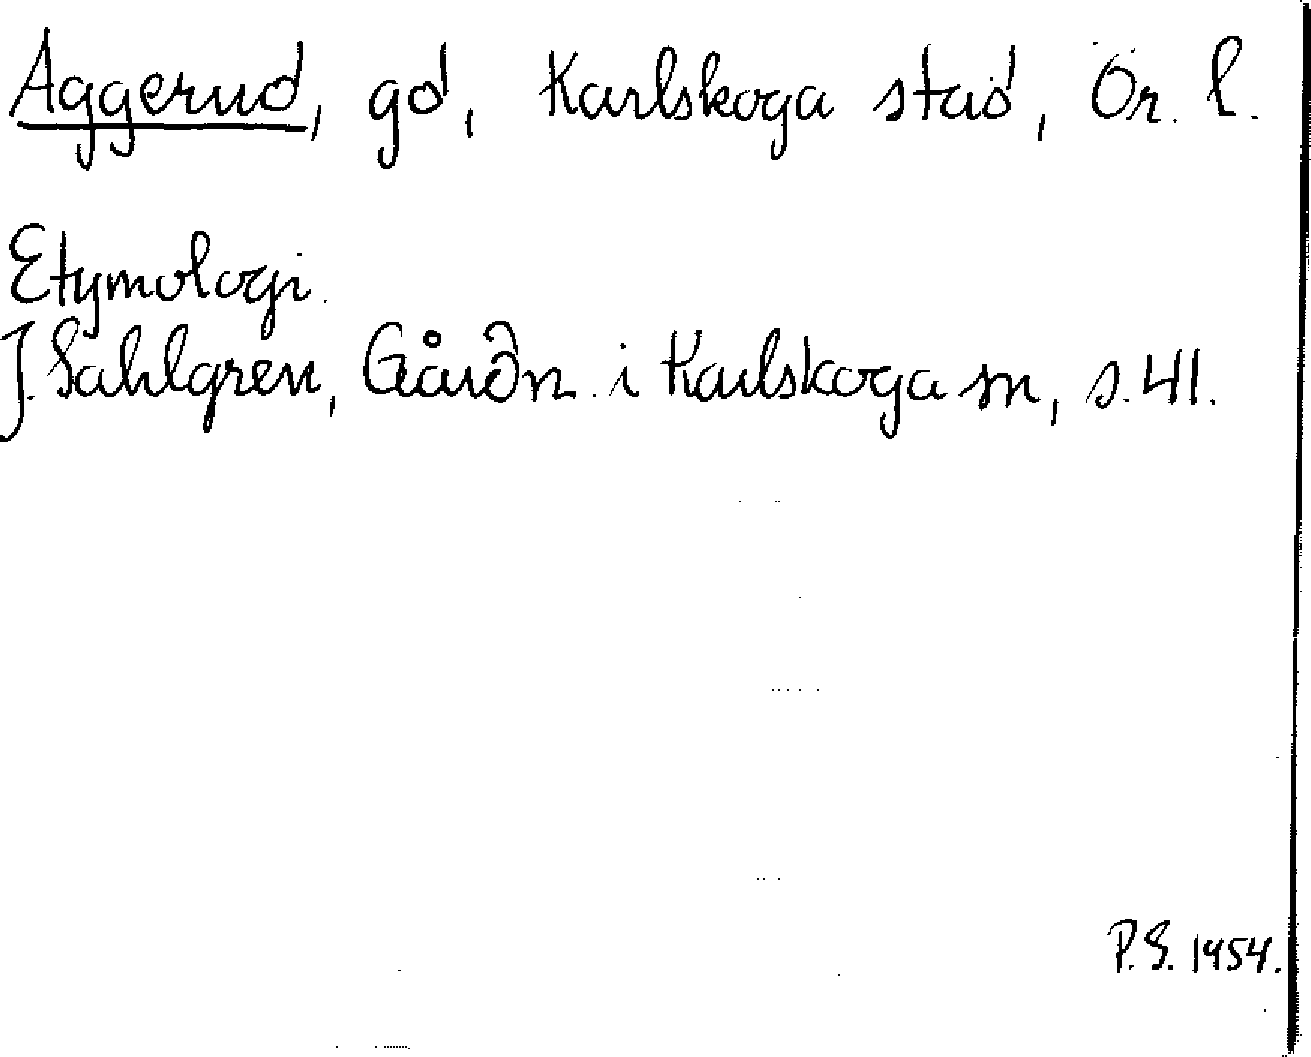 Aggerud, gd, Karlskoga stad, Ör. l.
Etymologi.
J. Sahlgren, Gårdn. i Karlskoga sn, s. 41.
P.S. 1954.